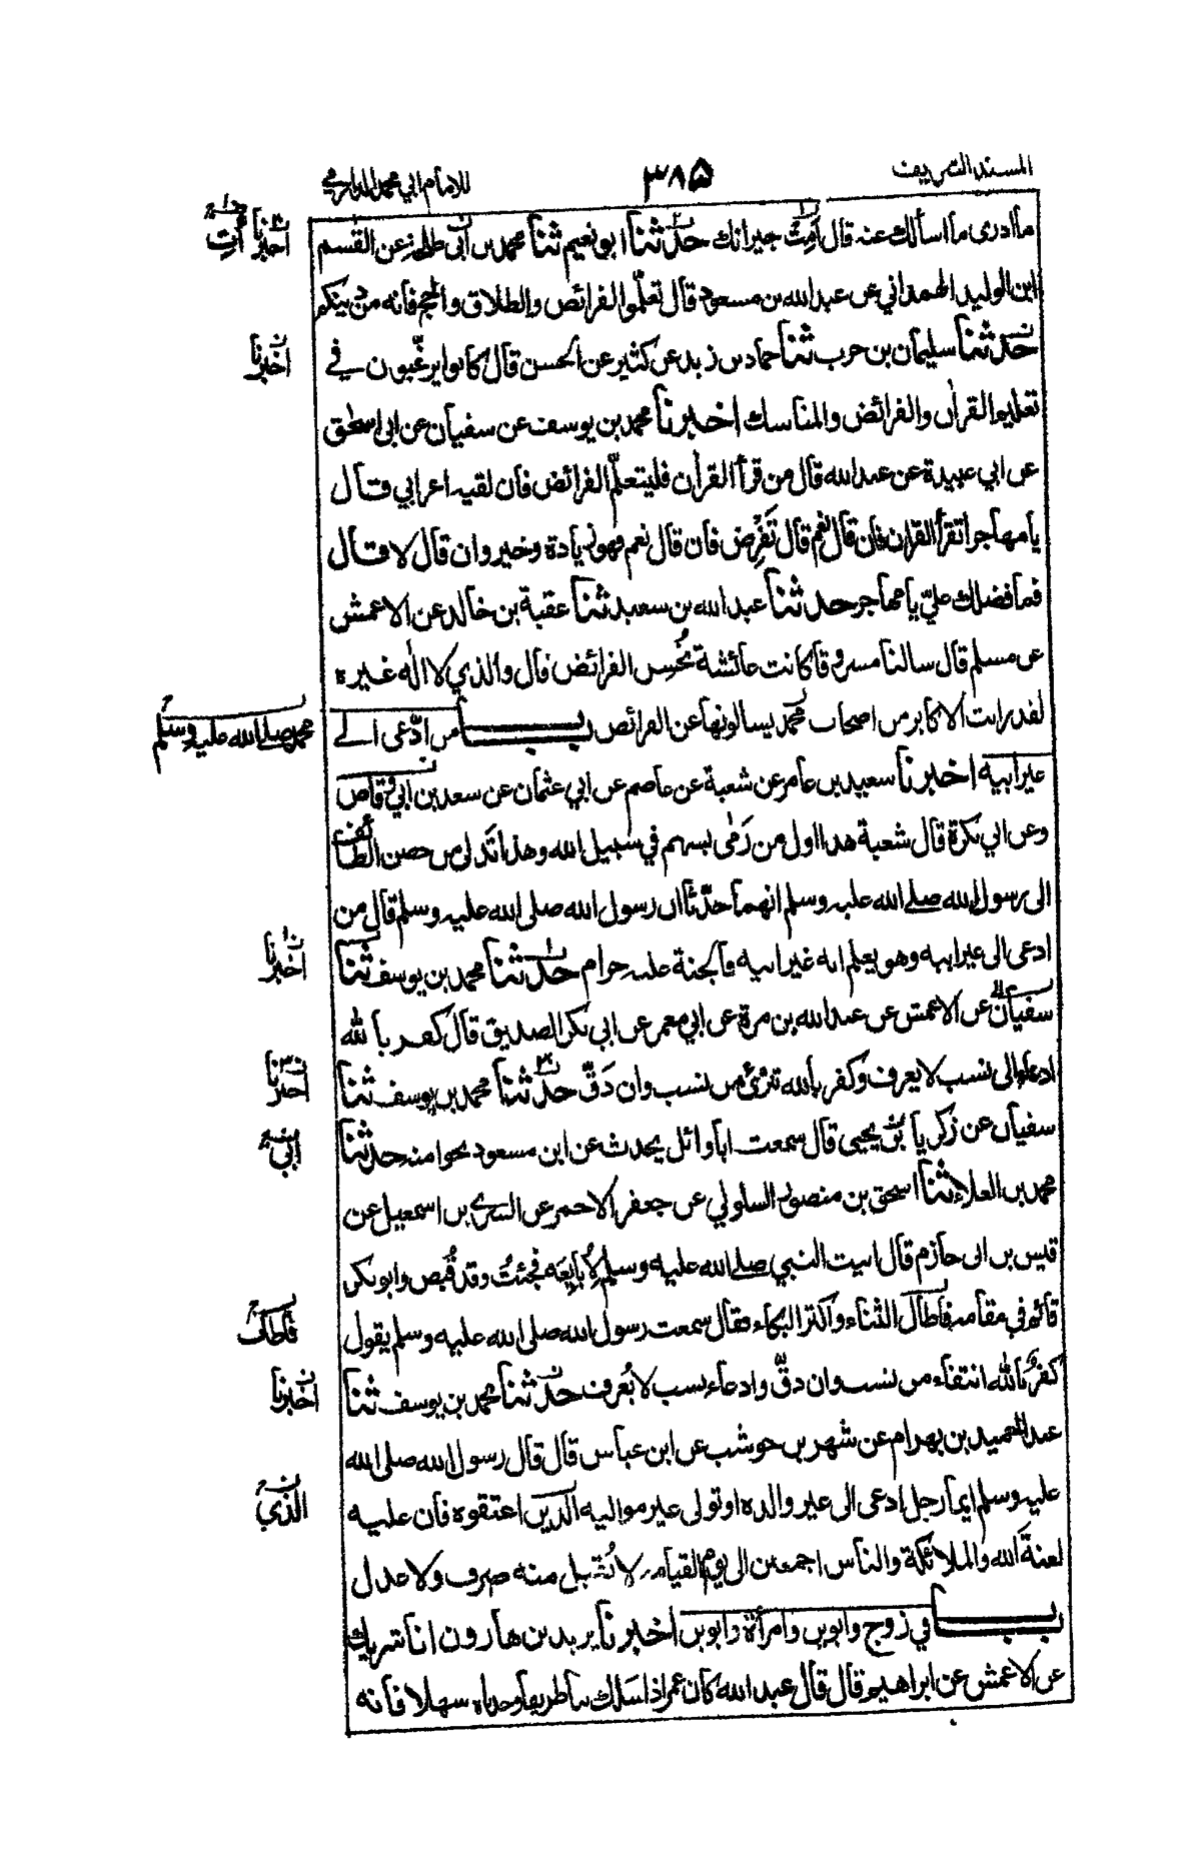 المسند الشريف
٣٨٥
للامام ابي محمد الدارمي
ما ادرى ما اسألك عنه قال اَمِتْ جيرانك حدثنا ابو نعيم ثنا محمد بن أبى طلحة عن القسم
ابن الوليد الهمداني عن عبد الله بن مسعود قال تعلّموا الفرائض والطلاق والحج فانه من دينكم
حدثنا سليمان بن حرب ثنا حماد بن زيد عن كثير عن الحسن قال كانوا يرغّبون في
تعليم القراٰن والفرائض والمناسك اخبرنا محمد بن يوسف عن سفيان عن ابى اسحٰق
عن ابي عبيدة عن عبد الله قال من قرأ القراٰن فليتعلّم الفرائض فان لقيه اعرابي قال
يا مهاجر اتقرأ القران فان قال نعم قال تَفرِض فان قال نعم فهو زيادة وخير وان قال لا قال
فما فضلك عليّ يا مهاجر حدثنا عبد الله بن سعيد ثنا عقبة بن خالد عن الاعمش
عن مسلم قال سالنا مسروقا كانت عائشة تُحسِن الفرائض قال والذي لا الٰه غيره
لقد رايت الاكابر من اصحاب محمد يسالونها عن الفرائض باب من ادّعى الى
غير ابيه اخبرنا سعيد بن عامر عن شعبة عن عاصم عن ابي عثمان عن سعد بن ابي وقاص
وعن ابي بكرة قال شعبة هذا اول من رَمٰى بسهم في سبيل الله وهذا تَدلى من حصن الطائف
الى رسول الله صلى الله عليه وسلم انهما حدّثا ان رسول الله صلى الله عليه وسلم قال من
ادعى الى غير ابيه وهو يعلم انه غير ابيه فالجنة عليه حرام حدثنا محمد بن يوسف ثنا
سفيان عن الاعمش عن عبد الله بن مرة عن ابي معمر عن ابي بكر الصديق قال كفر بالله
ادعاء الى نسب لا يعرف وكفر بالله تبرّئ من نسب وان دَقّ حدثنا محمد بن يوسف ثنا
سفيان عن زكريا بن يحيى قال سمعت ابا وائل يحدث عن ابن مسعود نحوا منه حدثنا
محمد بن العلاء ثنا اسحق بن منصور السلولي عن جعفر الاحمر عن السري بن اسمعيل عن
قيس بن ابى حازم قال اتيت النبي صلى الله عليه وسلم لاُبايِعَه فجئتُ وقد قُبض وابو بكر
قائم في مقامه فاطال الثناء واكثر البكاء فقال سمعت رسول الله صلى الله عليه وسلم يقول
كفرٌ بالله انتفاء من نسب وان دقّ وادعاء نسب لا يُعرف حدثنا محمد بن يوسف ثنا
عبد الحميد بن بهرام عن شهر بن حوشب عن ابن عباس قال قال رسول الله صلى الله
عليه وسلم ايما رجل ادعى الى غير والده او تولى غير مواليه الذين اعتقوه فان عليه
لعنة الله والملائكة والناس اجمعين الى يوم القيامة لا يُقبل منه صرف ولا عدل
باب في زوج وابوين وامرأة وابوين اخبرنا يزيد بن هارون انا شريك
عن الاعمش عن ابراهيم قال قال عبد الله كان عمر اذا سَلك بنا طريقا وجدناه سهلا فانه
اخبرنا اَمِتِ
اخبرنا
محمد صلى الله عليه وسلم
اخبرنا
اخبرنا
ابي
فاطال
اخبرنا
الذي